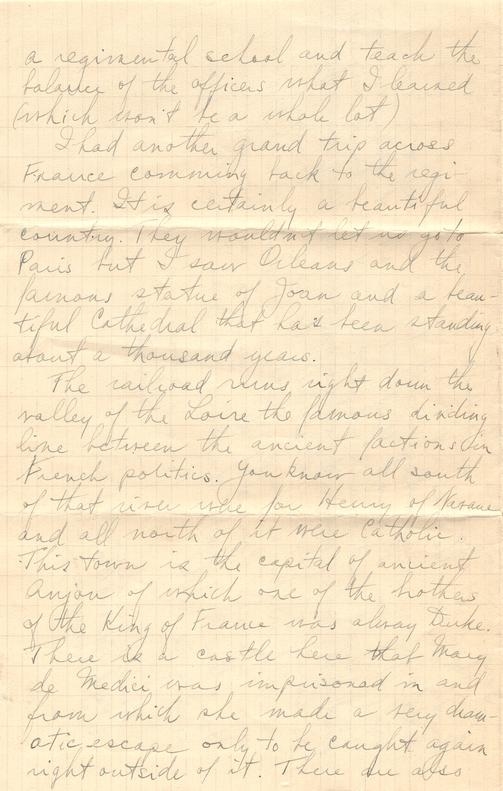 a regimental school and teach the
balance of the officers what I learned
(which won't be a whole lot)
I had another grand trip across
France comming back to the regi-
ment. It is certainly a beautiful
country. They wouldn't let us go to
Paris but I saw Orleans and the
famous statue of Joan and a beau-
tiful Cathedral that has been standing
about a thousand years.
The railroad runs right down the
valley of the Loire the famous dividing
line between the ancient factions in
French politics. You know all south
of that river were for Henry of Navarre
and all north of it were Catholic.
This town is the capital of ancient
Anjou of which one of the brothers
of the King of France was alway Duke.
There is a castle here that Mary
de Medici was imprisoned in and
from which she made a very dram-
atic escape only to be caught again
right outside of it. There are also